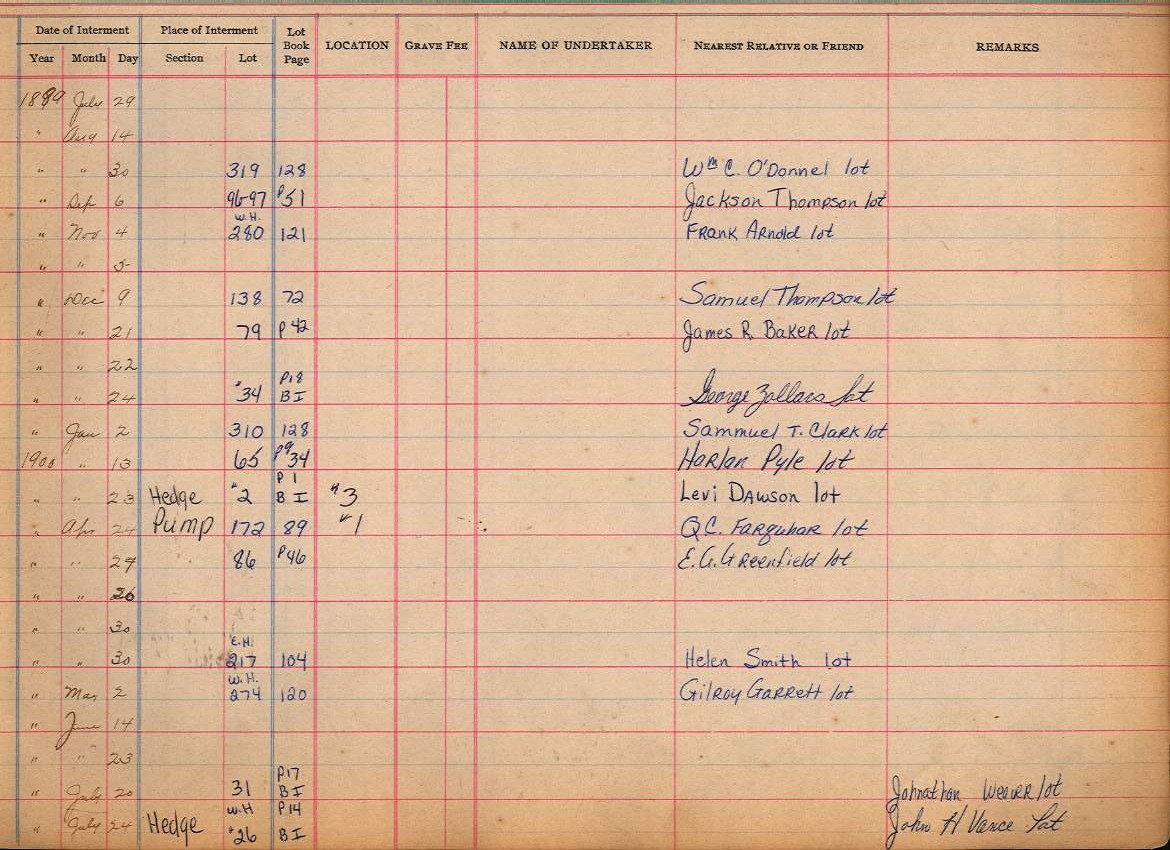 Date of Interment Place of Interment Lot Book Page LOCATION GRAVE FEE NAME OF UNDERTAKER NEAREST RELATIVE OR FRIEND REMARKS
Year Month Day Section Lot
1899 July 29
" Aug 14
" " 30 319 128 Wm C. O'Donnel lot
" Sep 6 96-97 P51 Jackson Thompson lot
" Nov 4 W.H. 280 121 Frank Arnold lot
" " 5
" Dec 9 138 72 Samuel Thompson lot
" " 21 79 P 42 James R. Baker lot
" " 22
" " 24 "34 P18 B I George Zollars Lot
" Jan 2 310 128 Sammuel T. Clark lot
1900 " 13 65 P9 34 Harlan Pyle lot
" " 23 Hedge "2 P 1 B I "3 Levi Dawson lot
" Apr 24 Pump 172 89 "1 Q.C. Farquhar lot
" " 24 86 P46 E.G. Greenfield lot
" " 26
" " 30
" " 30 E.H. 217 104 Helen Smith lot
" May 2 W.H. 274 120 Gilroy Garrett lot
" June 14
" " 23
" July 20 31 P17 B I Johnathan Weaver lot
" July 24 Hedge W.H "26 P14 B I John H Vance Lot